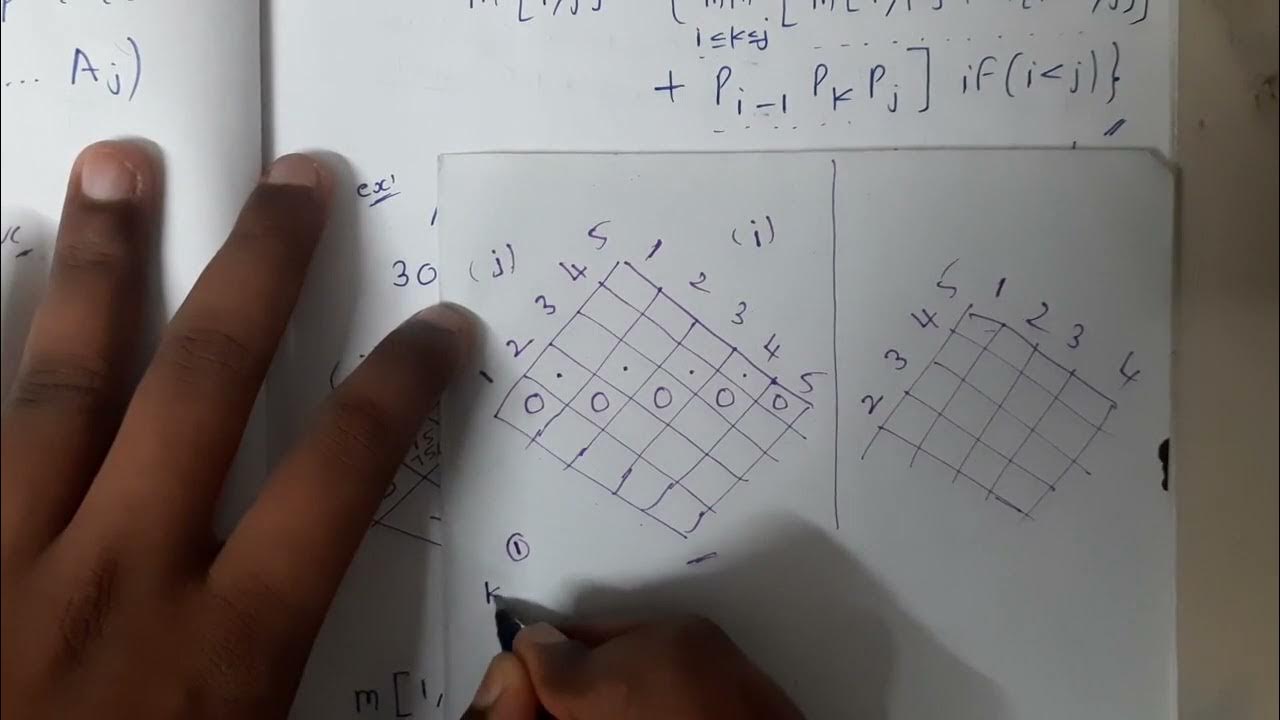 ... Aj)
i≤k≤j
+ Pi-1 Pk Pj ] if(i<j)}
ex'
30
(j) (i)
1 2 3 4 5 1 2 3 4 5
0 0 0 0 0
2 3 4 5 1 2 3 4
①
k
m[1,